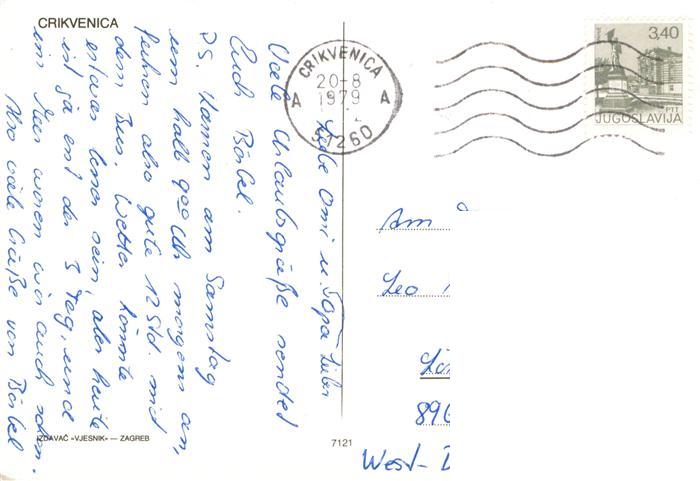 CRIKVENICA
CRIKVENICA
20-8
1979
A A
51260
3,40
PTT
JUGOSLAVIJA
Liebe Omi u. Opa Lieber
Viele Urlaubsgrüße sendet
Euch Bärbel.
PS. Kamen am Samstag
um halb 9oo Uhr morgens an,
fuhren also gute 12 Std. mit
dem Bus. Wetter könnte
etwas besser sein, aber heute
ist ja erst der 3 Tag, und
im Meer waren wir auch schon.
Also viele Grüße von Bärbel
Am
Leo
896
West-
IZDAVAČ »VJESNIK« — ZAGREB
7121